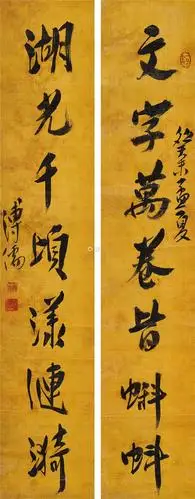 文字萬卷皆蝌蚪
癸未孟夏
湖光千頃漾漣漪
溥儒